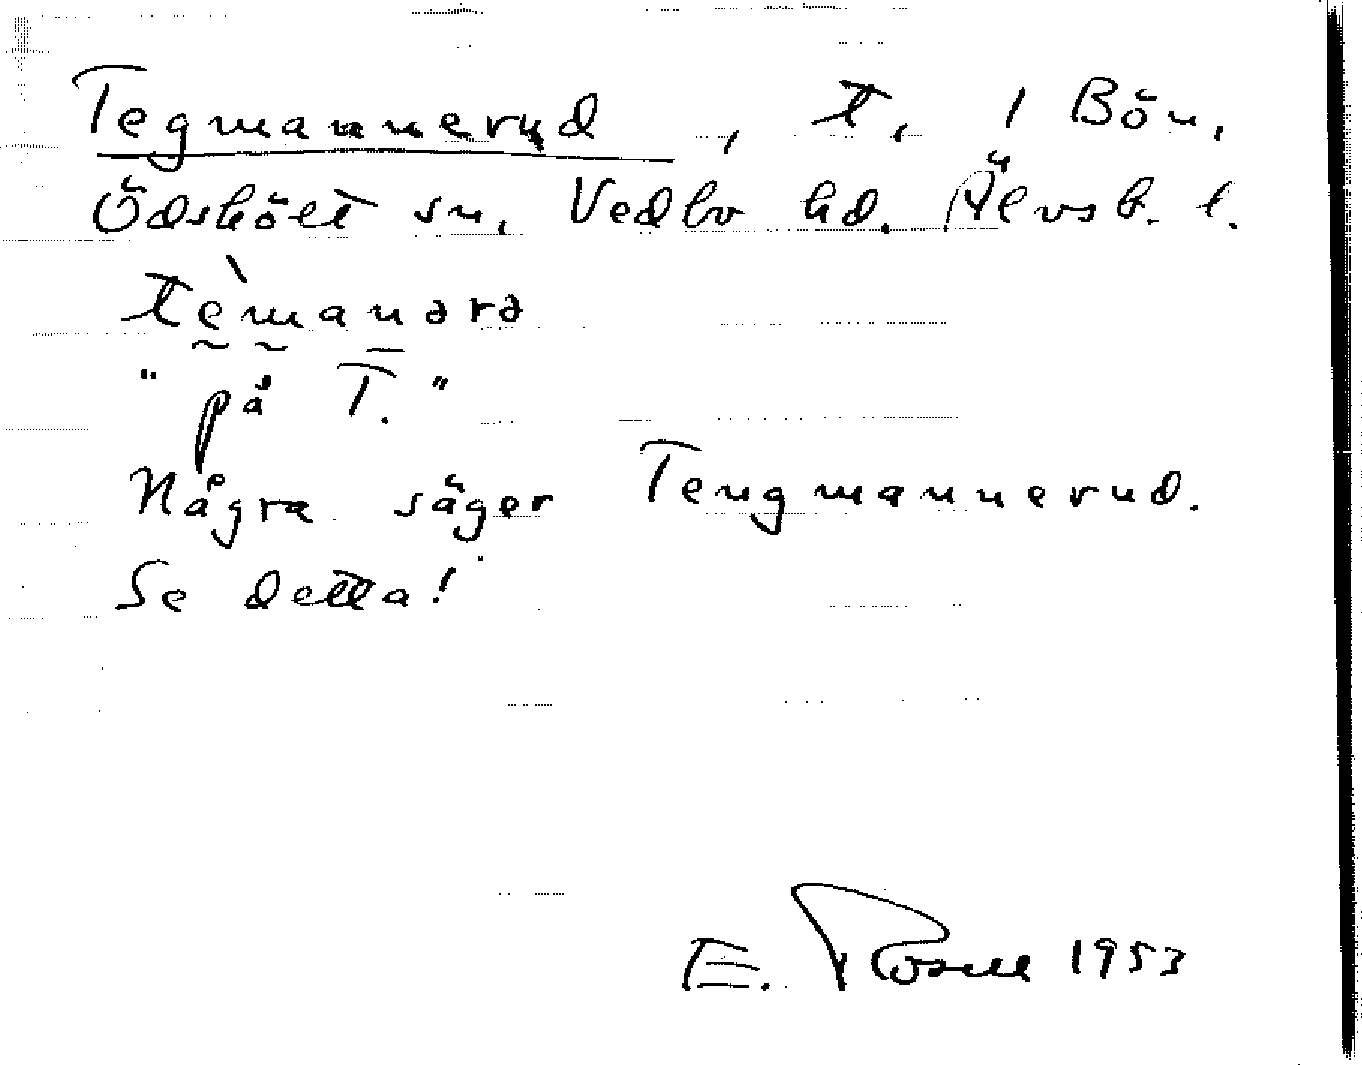 Tegmannerud, t. 1 Bön,
Ödskölt sn, Vedbo hd. Älvsb. l.
tèmanərə
"på T."
Några säger Tengmannerud.
Se detta!
E. Rosell 1953